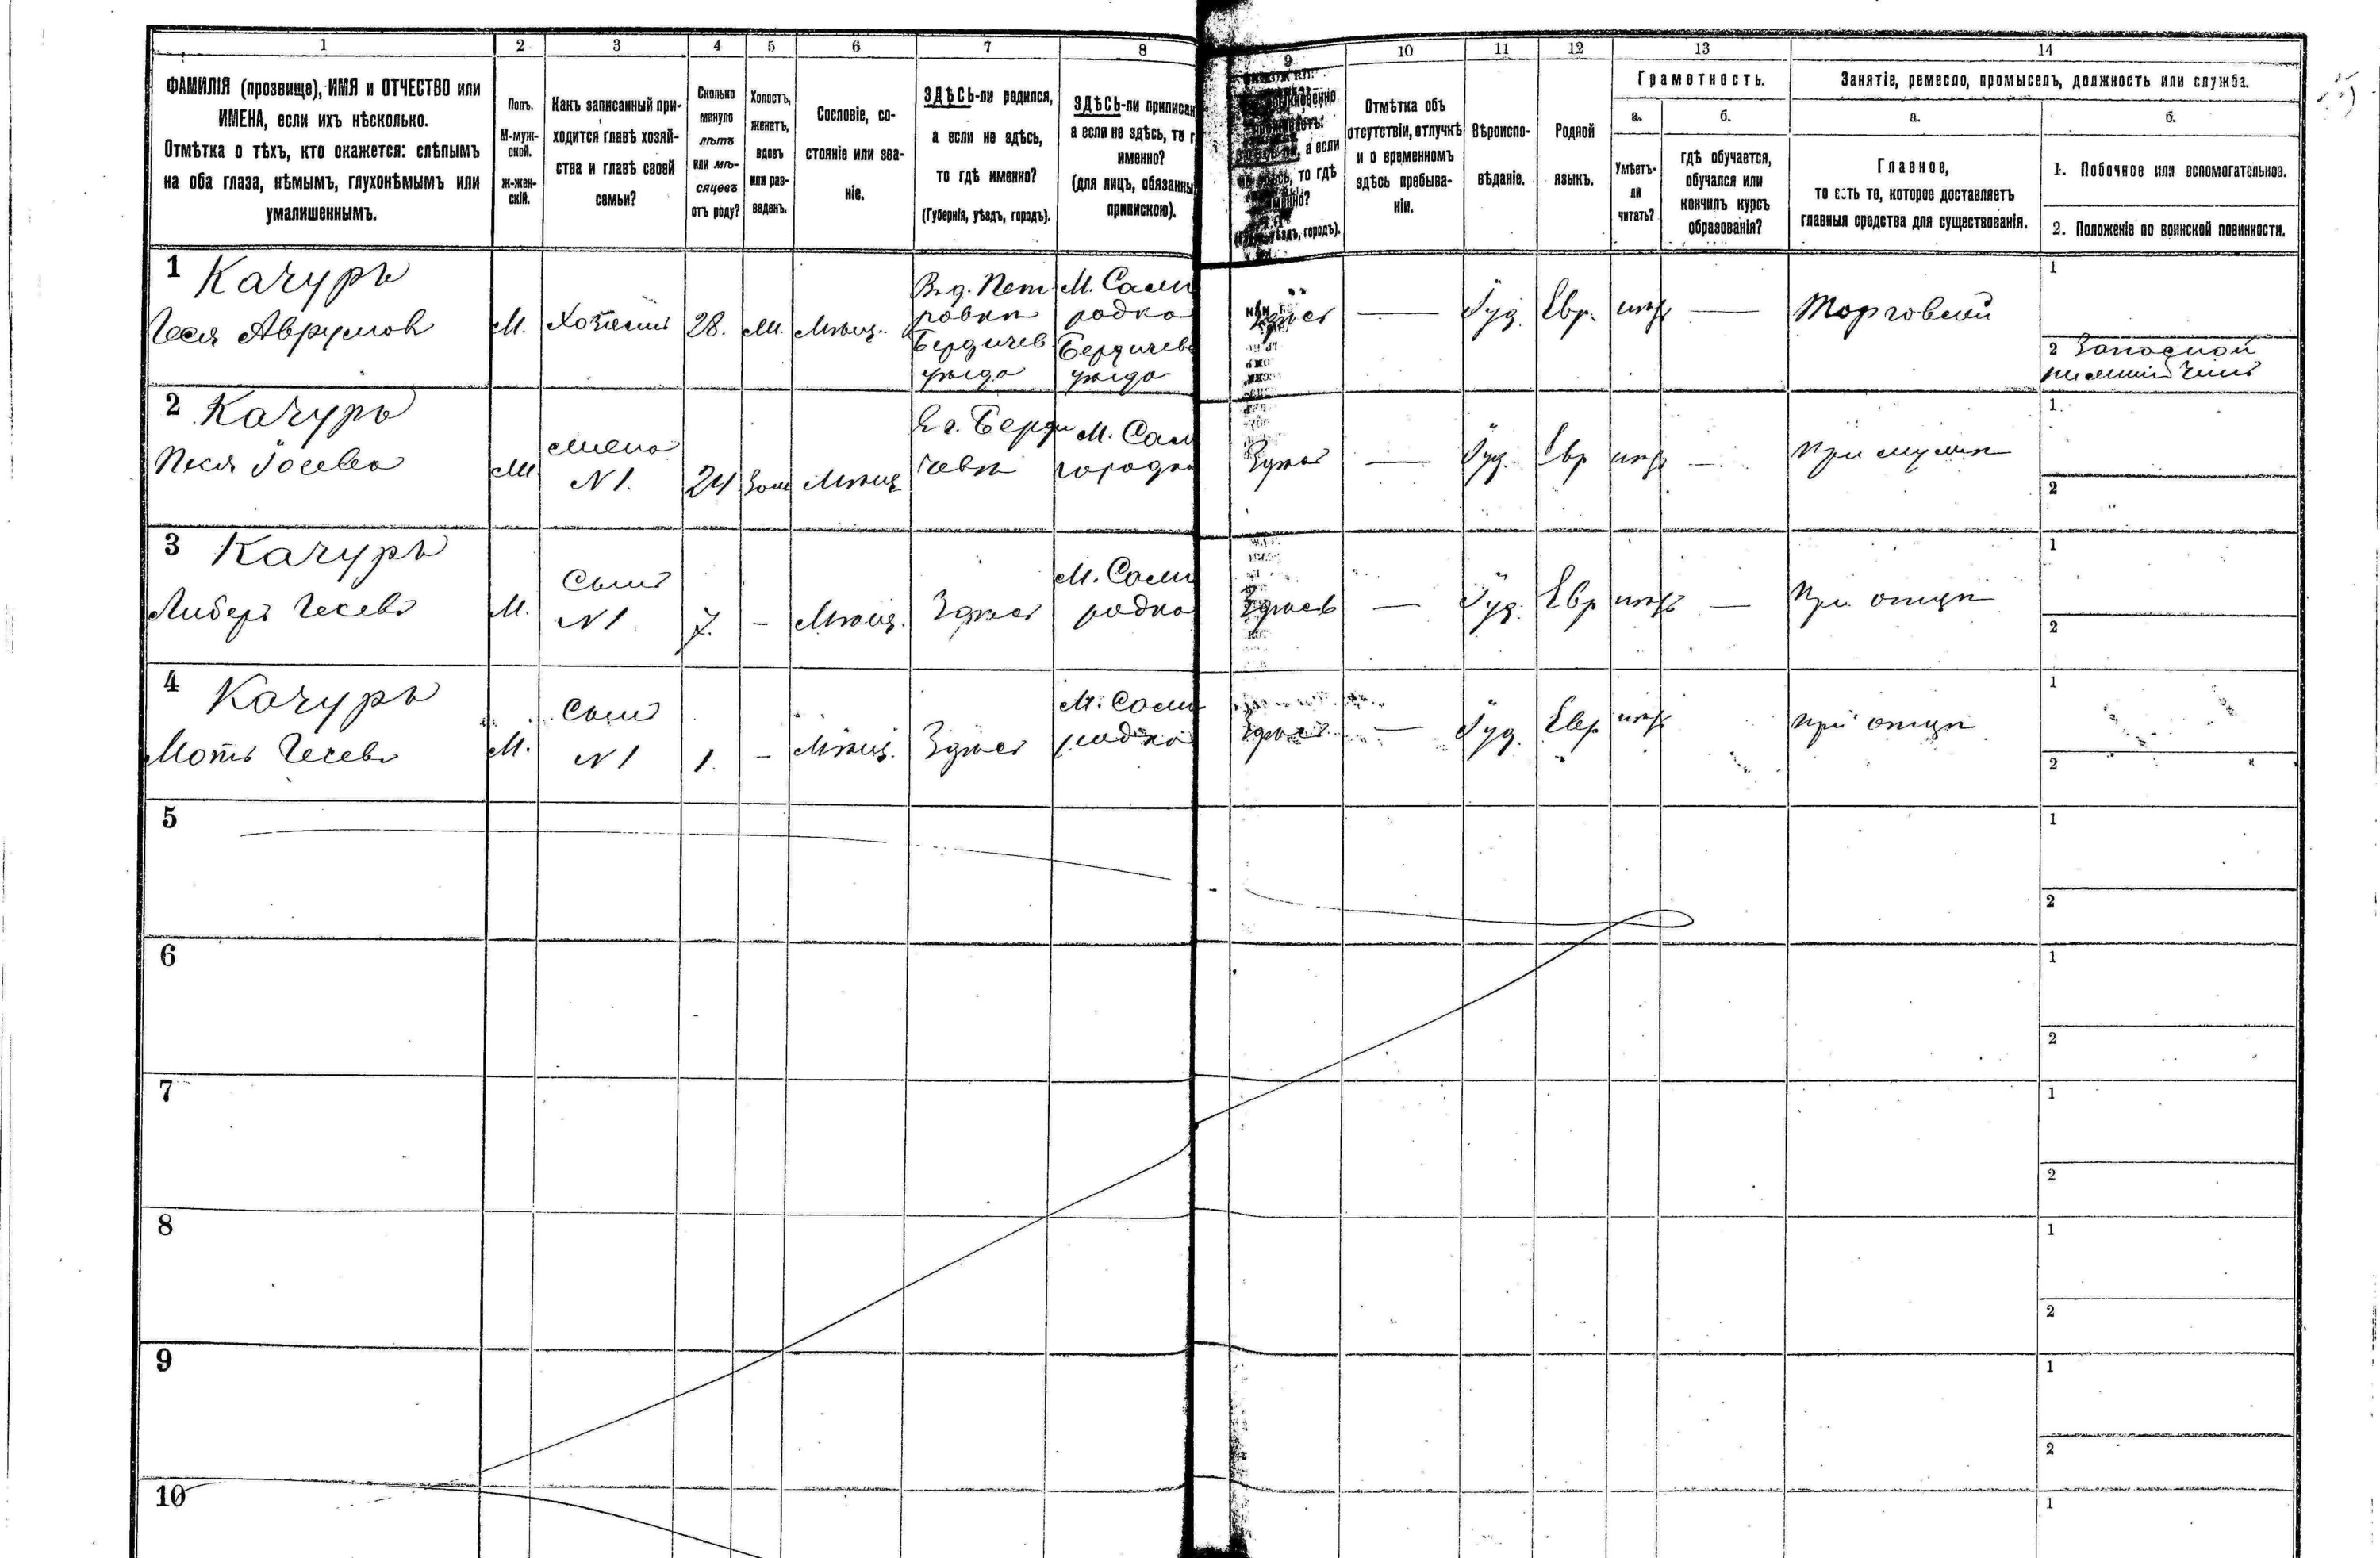 1 2 3 4 5 6 7 8 9 10 11 12 13 14
ФАМИЛІЯ (прозвище), ИМЯ и ОТЧЕСТВО или
ИМЕНА, если ихъ нѣсколько.
Отмѣтка о тѣхъ, кто окажется: слѣпымъ
на оба глаза, нѣмымъ, глухонѣмымъ или
умалишеннымъ.
Полъ.
М-муж-
ской.
Ж-жен-
скій.
Какъ записанный при-
ходится главѣ хозяй-
ства и главѣ своей
семьи?
Сколько
минуло
лѣтъ
или мѣ-
сяцевъ
отъ роду?
Холостъ,
женатъ,
вдовъ
или раз-
веденъ.
Сословіе, со-
стояніе или зва-
ніе.
ЗДѢСЬ-ли родился,
а если не здѣсь,
то гдѣ именно?
(Губернія, уѣздъ, городъ).
ЗДѢСЬ-ли приписан
а если не здѣсь, то г
именно?
(для лицъ, обязанны
припискою).
а если
то гдѣ
городъ).
Отмѣтка объ
отсутствіи, отлучкѣ
и о временномъ
здѣсь пребыва-
ніи.
Вѣроиспо-
вѣданіе.
Родной
языкъ.
Грамотность.
а.
Умѣетъ-
ли
читать?
б.
гдѣ обучается,
обучался или
кончилъ курсъ
образованія?
Занятіе, ремесло, промыселъ, должность или служба.
а.
Главное,
то есть то, которое доставляетъ
главныя средства для существованія.
б.
1. Побочное или вспомогательное.
2. Положеніе по воинской повинности.
1 Качуръ
Геся Аврумов
М.
Хозяинъ
28.
Мѣщ.
Бердичев
уѣзда
М. Сам
родка
Бердичев
уѣзда
—
Іуд.
Евр.
—
Торговец
1
2 Запасной
2 Качуръ
М.
жена
N 1.
24
Зам
Мѣщ
В г. Берди
чевѣ
М. Сам
городка
Здѣсь
—
Іуд.
Евр
—
При мужѣ
1
2
3 Качуръ
Либеръ Гесевъ
М.
Сынъ
N 1.
7.
—
Мѣщ.
Здѣсь
М. Сам
родка
Здѣсь
—
Іуд.
Евр
—
При отцѣ
1
2
4 Качуръ
Моть Гесевъ
М.
Сынъ
N 1
1.
—
Мѣщ.
Здѣсь
М. Сам
родка
Здѣсь
—
Іуд.
Евр
при отцѣ
1
2
5
1
2
6
1
2
7
1
2
8
1
2
9
1
2
10
1